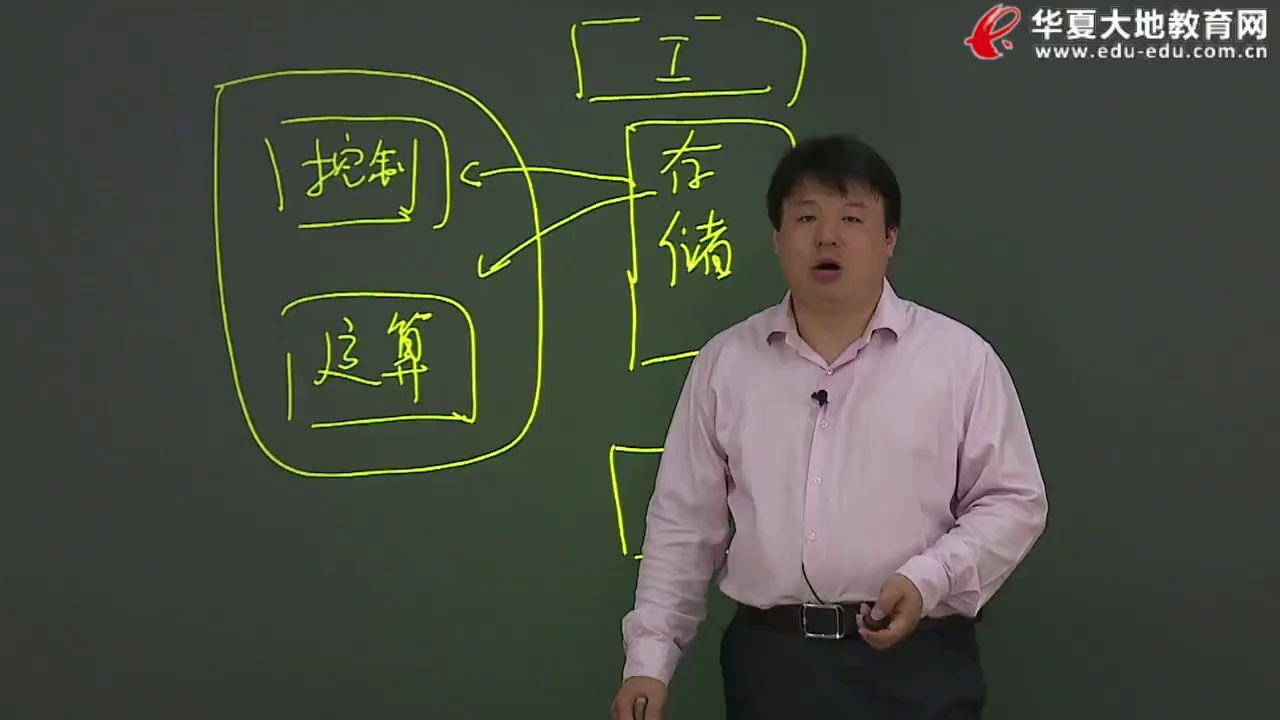 华夏大地教育网
www.edu-edu.com.cn
I
控制
存
储
运算